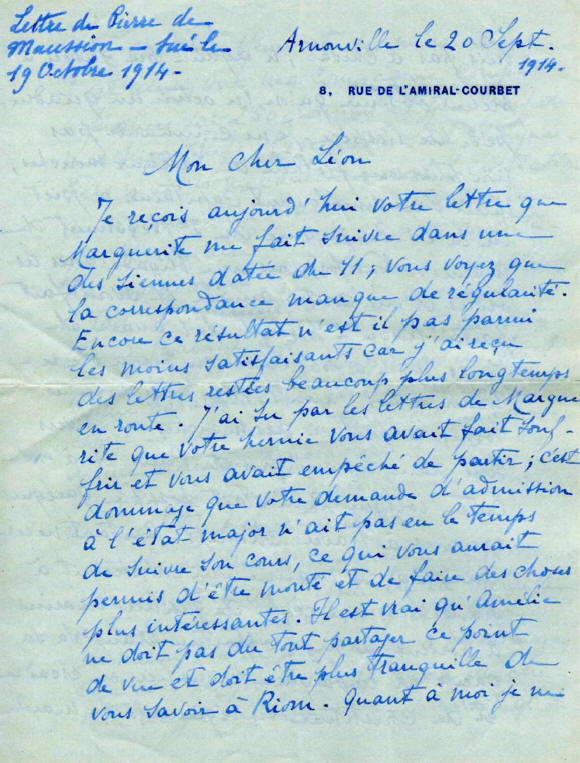 Lettre de Pierre de
Maussion – tué le
19 Octobre 1914 –
Arnonville le 20 Sept.
1914 –
8, RUE DE L'AMIRAL-COURBET
Mon Cher Léon
Je reçois aujourd'hui votre lettre que
Marguerite me fait suivre dans une
des siennes datée du 11 ; vous voyez que
la correspondance manque de régularité.
Encore ce résultat n'est il pas parmi
les moins satisfaisants car j'ai reçu
des lettres restées beaucoup plus longtemps
en route. J'ai su par les lettres de Margue
rite que votre hernie vous avait fait souf-
frir et vous avait empêché de partir ; c'est
dommage que votre demande d'admission
à l'état major n'ait pas eu le temps
de suivre son cours, ce qui vous aurait
permis d'être monté et de faire des choses
plus intéressantes. Il est vrai qu'Amélie
ne doit pas du tout partager ce point
de vue et doit être plus tranquille de
vous savoir à Riom. Quant à moi je me